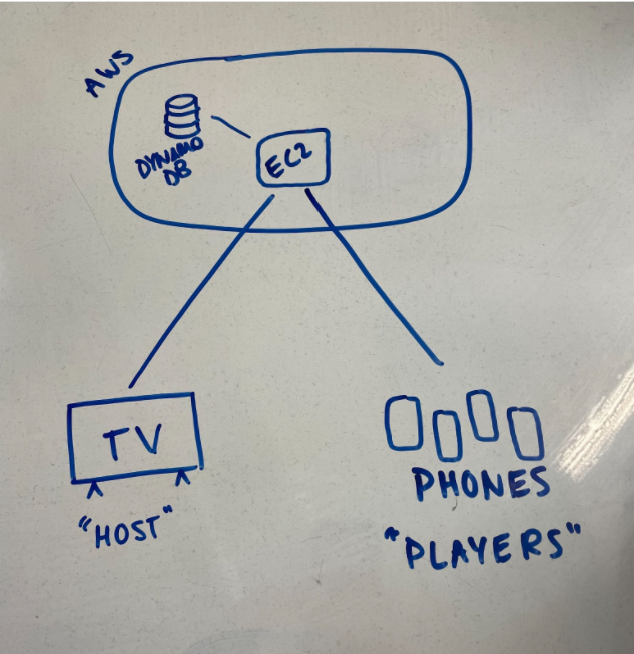 AWS
DYNAMO
DB
EC2
TV
"HOST"
PHONES
"PLAYERS"